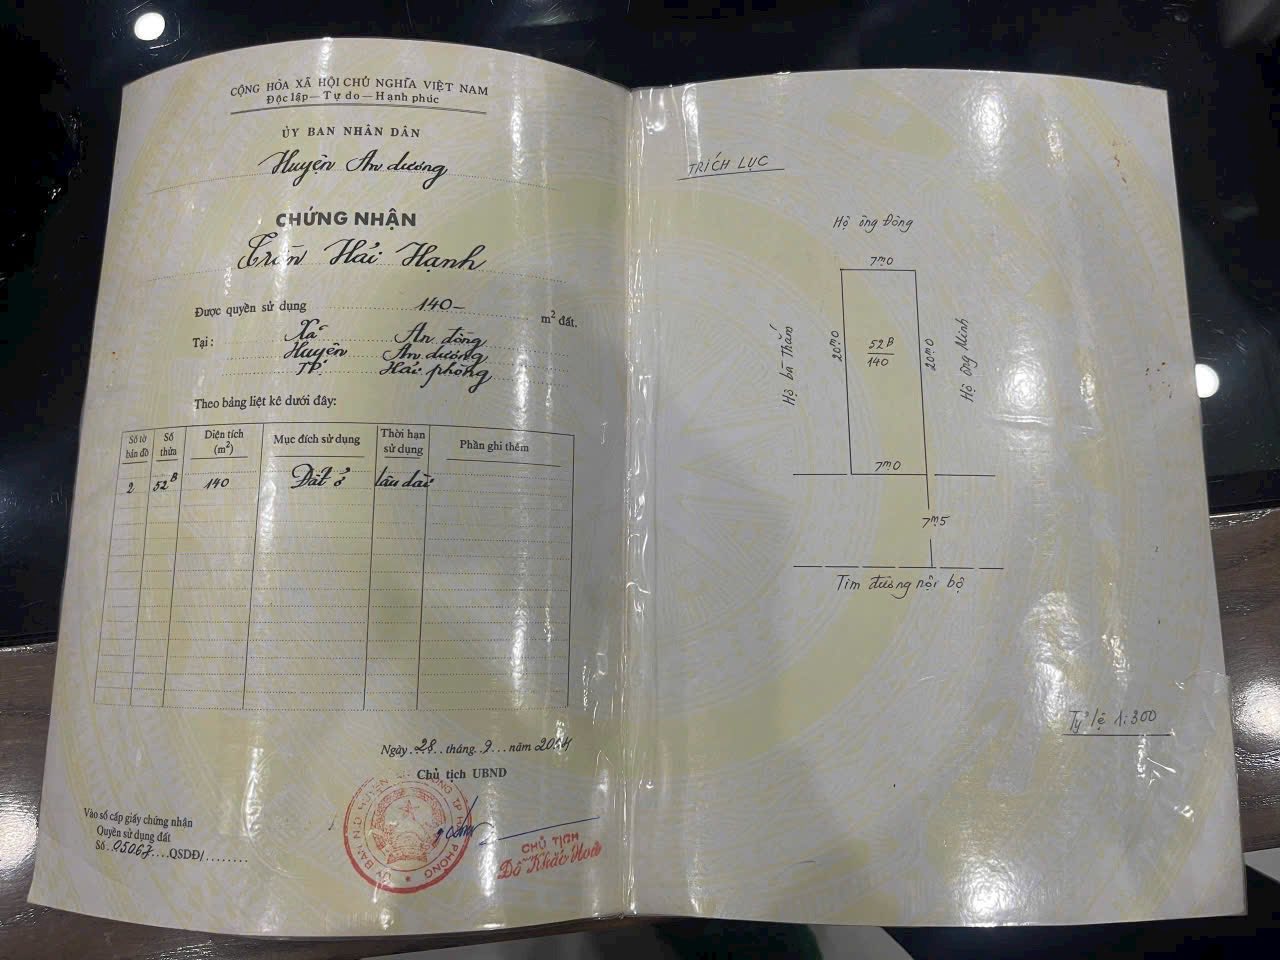 CỘNG HÒA XÃ HỘI CHỦ NGHĨA VIỆT NAM
Độc lập - Tự do - Hạnh phúc
ỦY BAN NHÂN DÂN
Huyện An dương
CHỨNG NHẬN
Trần Hải Hạnh
Được quyền sử dụng 140- m² đất.
Tại: Xã An đồng
Huyện An dương
TP. Hải phòng
Theo bảng liệt kê dưới đây:
Số tờ bản đồ Số thửa Diện tích (m²) Mục đích sử dụng Thời hạn sử dụng Phần ghi thêm
2 52B 140 Đất ở lâu dài
Ngày 28 tháng 9 năm 2004
Chủ tịch UBND
CHỦ TỊCH
Đỗ Khắc Hoà
Vào sổ cấp giấy chứng nhận
Quyền sử dụng đất
Số 05067 QSDĐ/
TRÍCH LỤC
Hộ ông Đông
7m0
Hộ bà Thắm
20m0
52B
140
20m0
Hộ ông Minh
7m0
7m5
Tim đường nội bộ
Tỷ lệ 1:300